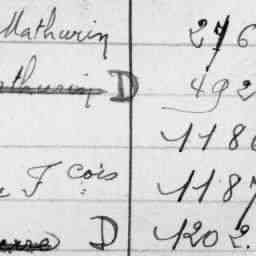 Mathurin 276
Mathurin D 492
118
F cois 1187
D 1202.